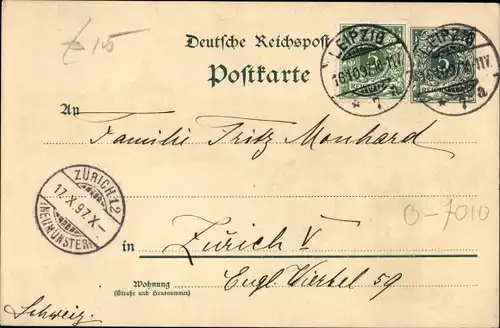 £ 15
Deutsche Reichspost
Postkarte
LEIPZIG
7 a
LEIPZIG
7 a
5
5
An
Familie Fritz Monhard
ZÜRICH 12
17.X.97.X-
(NEUMÜNSTER)
O-7010
in Zürich V
Wohnung
(Straße und Hausnummer)
Engl. Viertel 59
Schweiz.